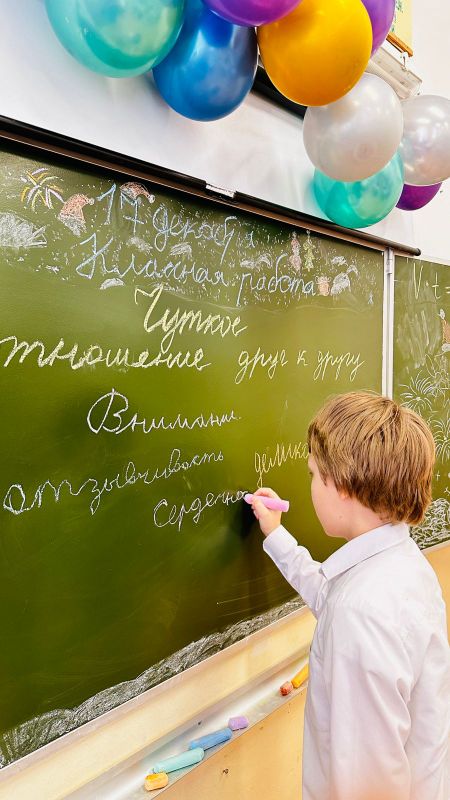 17 декабря
Классная работа
Чуткое
тношение друг к другу
Внимани
отзывчивость делика
Сердечно
V = t =